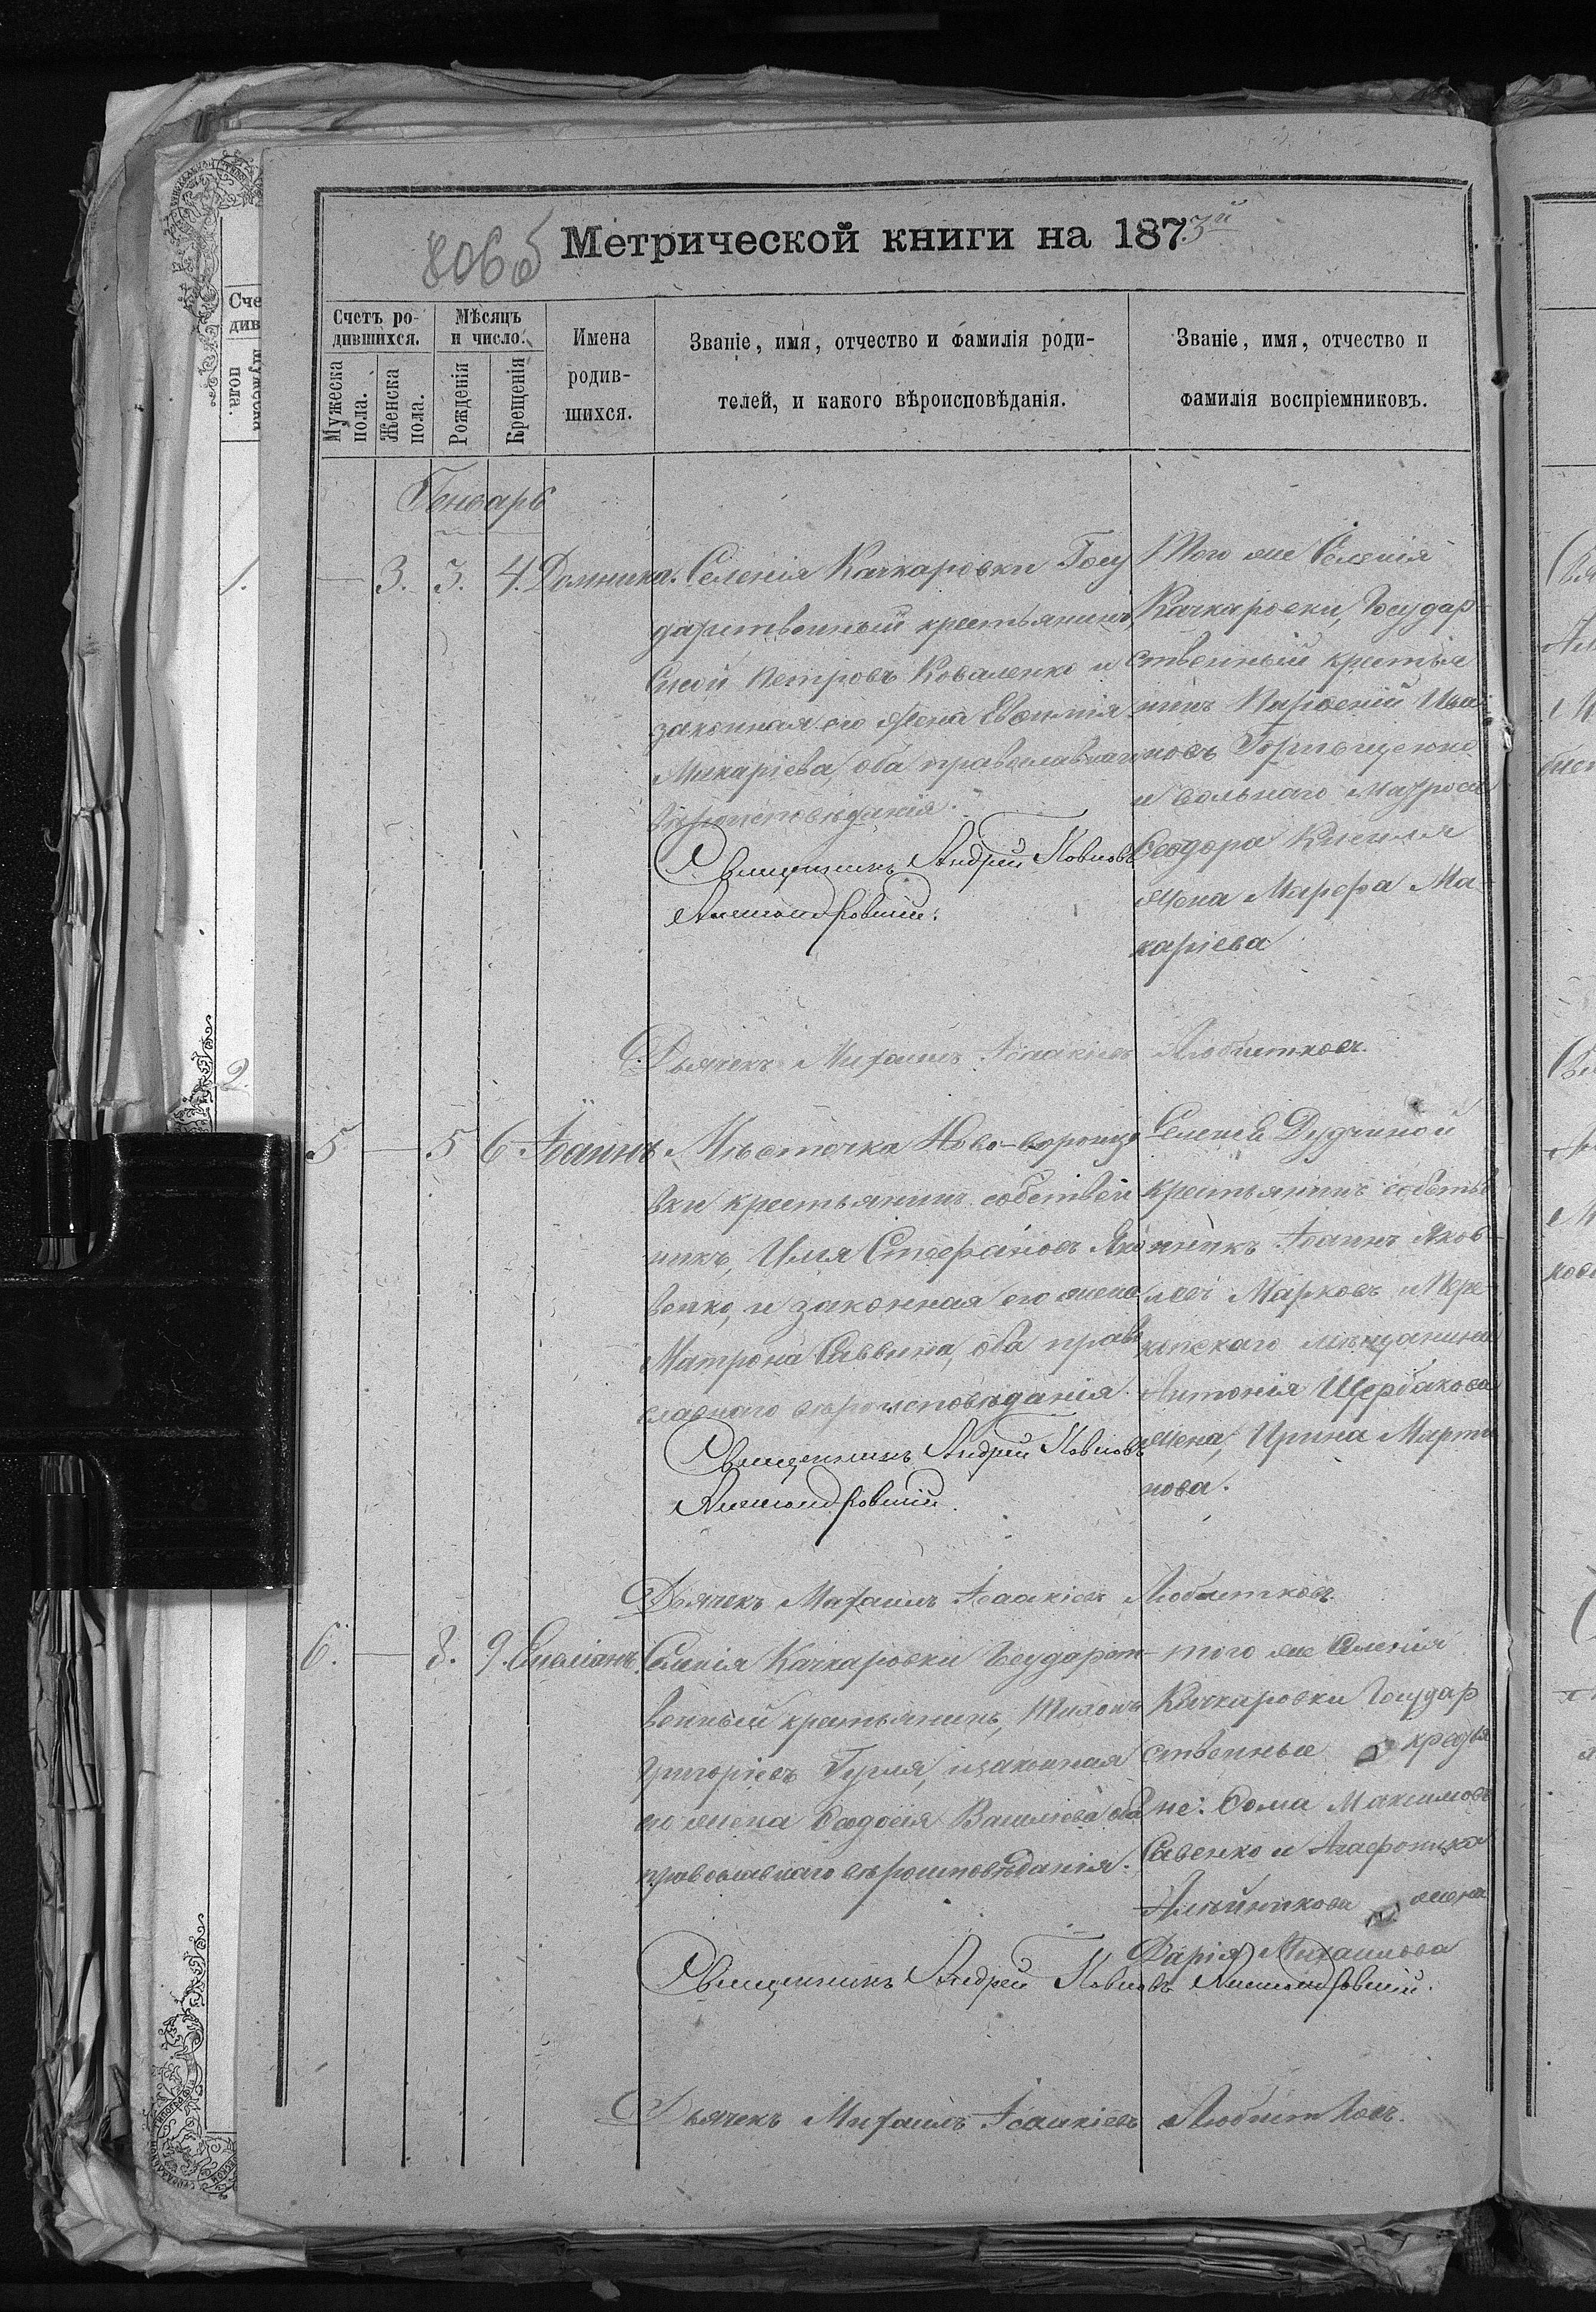 806 б
Метрической книги на 1873й
Счетъ родившихся.
Мужеска пола.
Женска пола.
Мѣсяцъ и число.
Рожденія
Крещенія
Имена родившихся.
Званіе, имя, отчество и фамилія родителей, и какого вѣроисповѣданія.
Званіе, имя, отчество и фамилія воспріемниковъ.
Генварь
— 3. 3. 4. Домника.
Селенія Качкаровки Госу
дарственный крестьянинъ,
Петровъ Коваленко и
законная его жена Евѳимія
Макаріева, оба православнаго
вѣроисповѣданія.
Священникъ Андрей
Того же Селенія
Качкаровки, Государ-
ственный крестья
нинъ Парѳеній Ива
новъ
и вольнаго матроса
Ѳеодора Киселя
жена Марѳа Ма-
каріева
Дьячекъ Михаилъ Ісаакіевъ Любитковъ.
5 — 5 6 Іоаннъ
Мѣстечка Ново-воронцо
вки крестьянинъ собствен
никъ, Илія Стефановъ Яко
венко, и законная его жена
Матрона Саввина, оба право
славнаго вѣроисповѣданія.
Священникъ Андрей
Селенія Дудчиной
крестьянинъ собстве
нникъ Іоаннъ Яков-
левъ Марковъ и Бере
мѣщанина
Антонія Щербакова
жена, Ирина Марти
нова.
Дьячекъ Михаилъ Ісаакіевъ Любитковъ.
6. — 8. 9. Емиліанъ.
Селенія Качкаровки Государст-
венный крестьянинъ, Тихонъ
Григоріевъ Гуля, и законная
его жена Ѳеодосія Василіева оба
православнаго вѣроисповѣданія.
того же Селенія
Качкаровки Государ
ственные крестья
не: Ѳома Максимовъ
Савенко и Агафоника
Алейникова жена
Дарія Михаилова
Священникъ Андрей
Дьячекъ Михаилъ Ісаакіевъ Любитковъ.